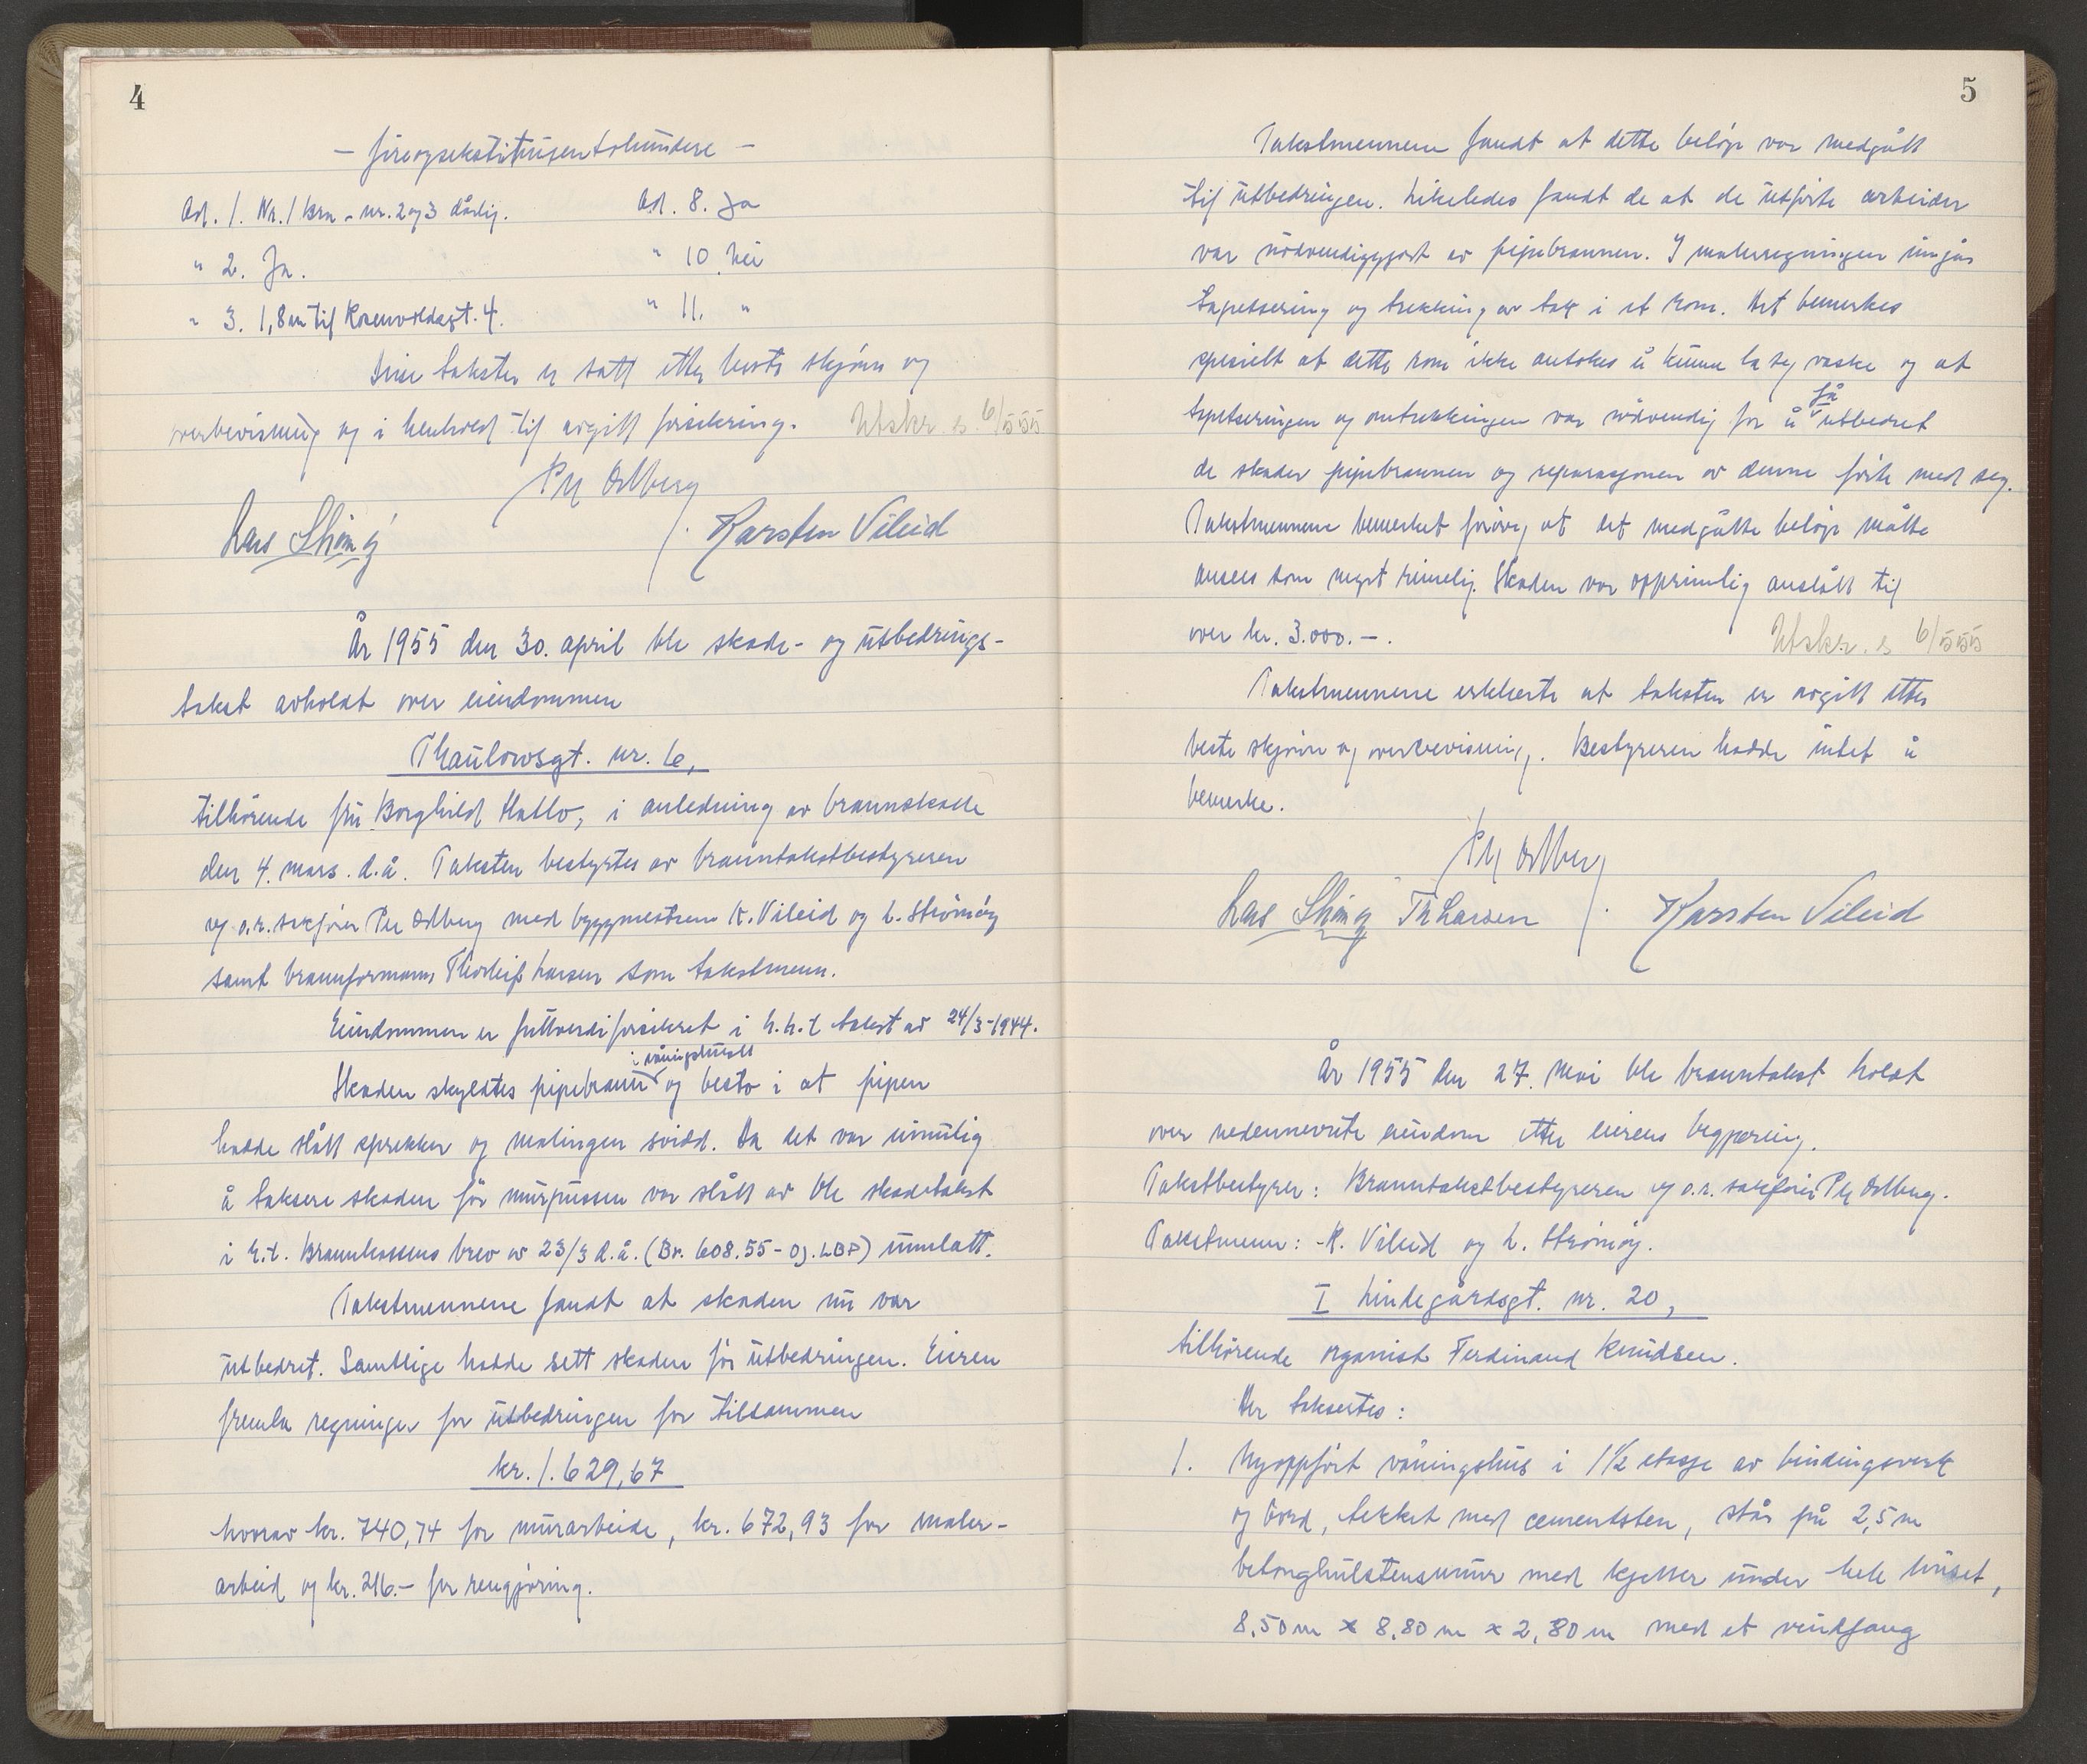 4
- fireogsekstitusentohundre -
Ad. 1. Nr. 1 bra - nr. 2 og 3 dårlig. Ad. 8. Ja
" 2. Ja. " 10. Nei
" 3. 1,8 m til Rosenvoldsgt. 4. " 11. "
Disse takster er satt etter beste skjønn og
overbevisning og i henhold til avgitt forsikring. Utskr. s. 6/5 55
Per Odberg
Lars Strömöy Karsten Vileid
År 1955 den 30. april ble skade- og utbedrings-
takst avholdt over eiendommen
Thaulowsgt. nr. 6,
tilhørende fru Borghild Hatlo, i anledning av brannskade
den 4. mars. d.å. Taksten bestyrtes av branntakstbestyreren
o.r.sakfører Per Odberg med byggmestrene K. Vileid og L. Strömöy
samt brannformann Thorleif Larsen som takstmenn.
Eiendommen er fullverdiforsikret i h.h.t takst av 24/3-1944.
Skaden skyldtes pipebrann i våningshuset og besto i at pipen
hadde slått sprekker og malingen svidd. Da det var umulig
å taksere skaden før murpussen var slått av ble skadetakst
i h.t. Brannkassens brev av 23/3 d.å. (Br. 608.55 - OJ. LBP) unnlatt.
Takstmennene fandt at skaden nu var
utbedret. Samtlige hadde sett skaden før utbedringen. Eieren
fremla regninger for utbedringen for tilsammen
kr. 1.629,67
hvorav kr. 740,74 for murarbeide, kr. 672,93 for maler-
arbeid og kr. 216.- for rengjøring.
5
Takstmennene fandt at dette beløp var medgått
til utbedringen. Likeledes fandt de at de utførte arbeider
var nødvendiggjort av pipebrannen. I malerregningen inngår
tapetsering og trekking av tak i et rom. Det bemerkes
spesielt at dette rom ikke antokes å kunne la seg vaske og at
tapetseringen og omtrekkingen var nødvendig for å få utbedret
de skader pipebrannen og reparasjonen av denne førte med seg.
Takstmennene bemerket forøvrig at det medgåtte beløp måtte
ansees som meget rimelig. Skaden var opprinnelig anslått til
over kr. 3.000.-. Utskr. s 6/5 55
Takstmennene erklærte at taksten er avgitt etter
beste skjønn og overbevisning. Bestyreren hadde intet å
bemerke.
Per Odberg
Lars Strömöy Th Larsen Karsten Vileid
År 1955 den 27. mai ble branntakst holdt
over nedennevnte eiendom etter eierens begjæring.
Takstbestyrer: Branntakstbestyreren o.r. sakfører Per Odberg.
Takstmenn: K. Vileid og L. Strömöy.
I Lindegårdsgt. nr. 20,
tilhørende organist Ferdinand Knudsen.
Her takseertes:
1. Nyoppført våningshus i 1 1/2 etasje av bindingsverk
og bord, tekket med cementsten, står på 2,5 m
betonghulstensmur med kjeller under hele huset,
8,50 m x 8,80 m x 2,80 m med et vindfang